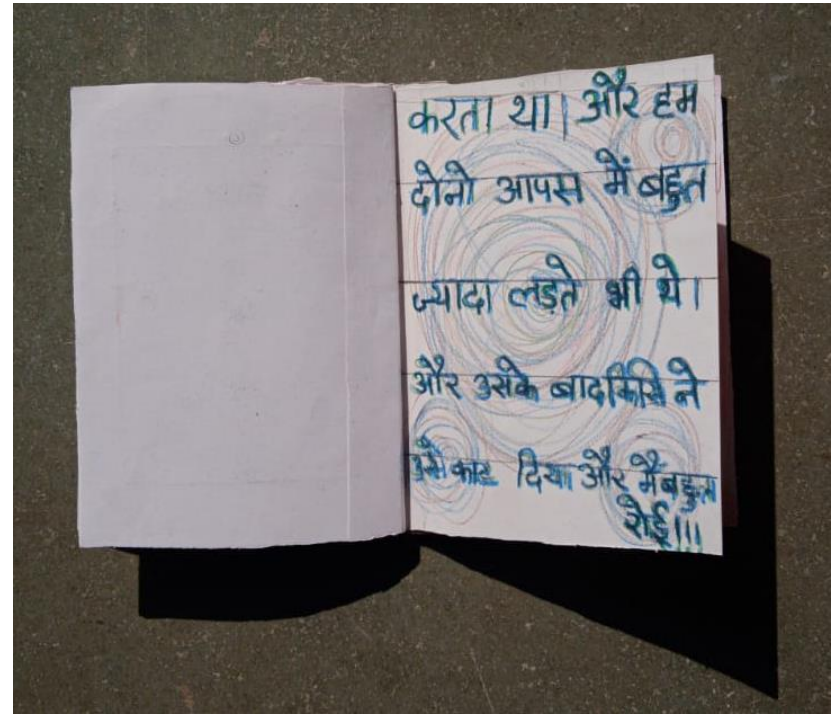 करता था। और हम
दोनो आपस में बहुत
ज्यादा लड़ते भी थे।
और उसके बादकिसि ने
उसे काट दिया और मैं बहुत
रोई।।।